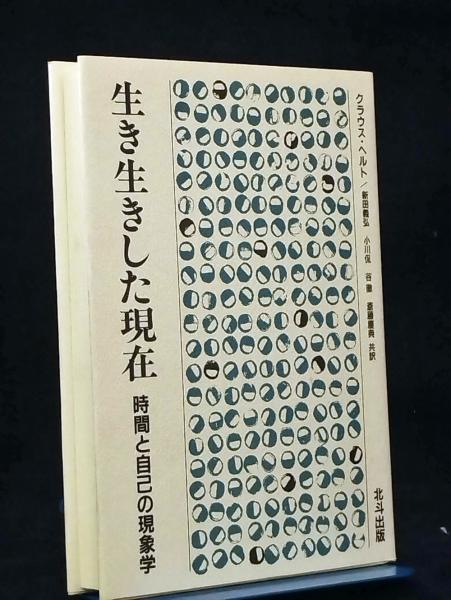 生き生きした現在
時間と自己の現象学
クラウス・ヘルト/新田義弘 小川侃 谷徹 斎藤慶典 共訳
北斗出版